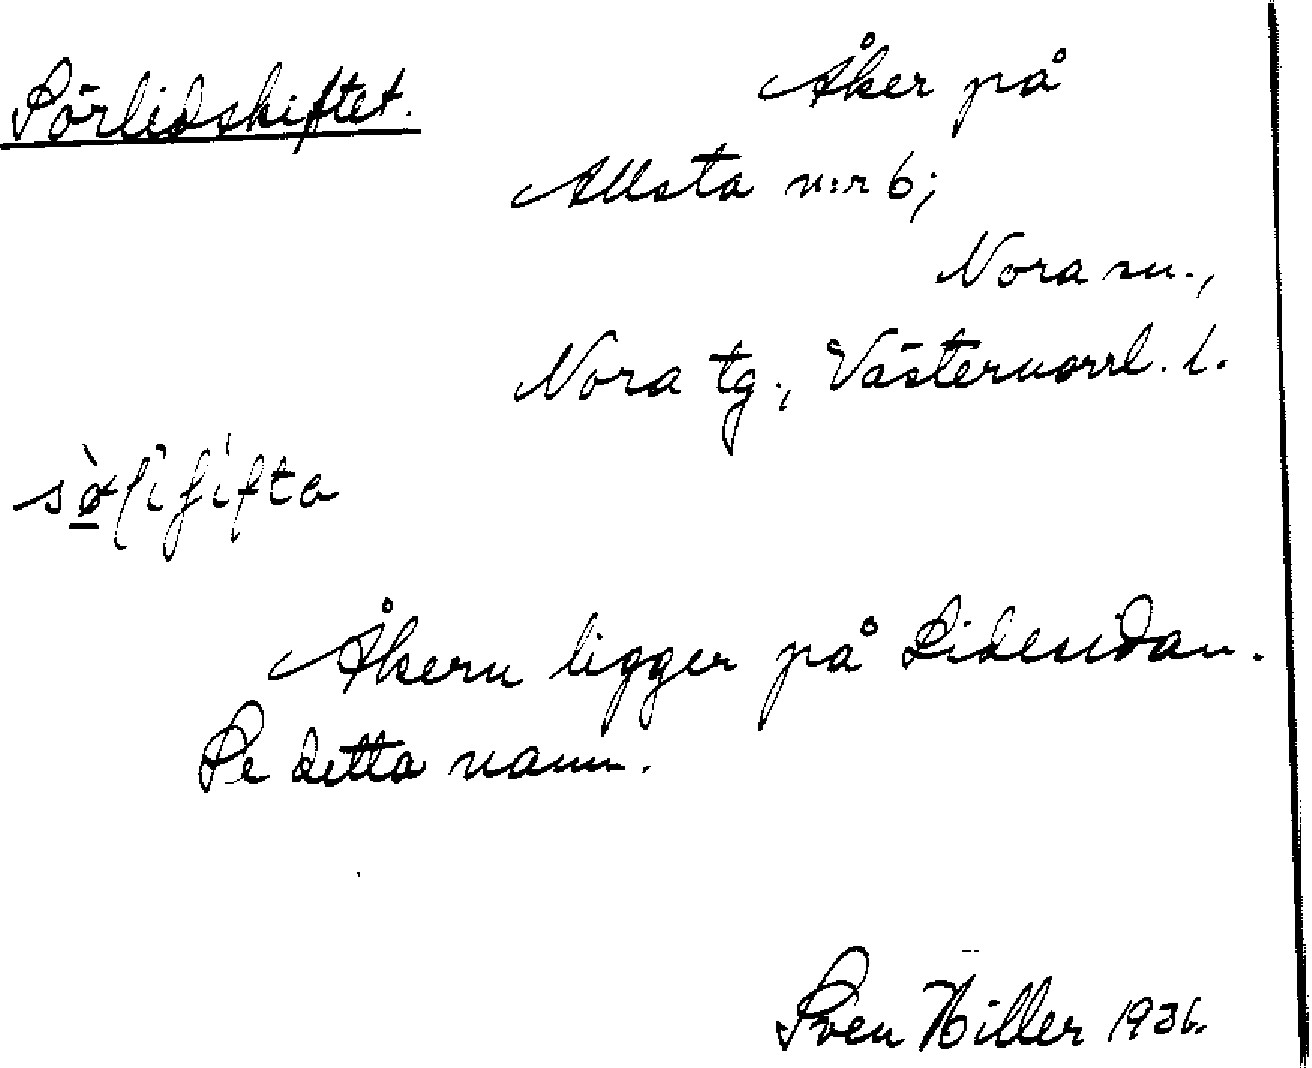 Sörlidskiftet.
Åker på
Allsta n:r 6;
Nora sn.,
Nora tg., Västernorrl. l.
Åkern ligger på Lidersidan.
Se detta namn.
Sven Hiller 1936.